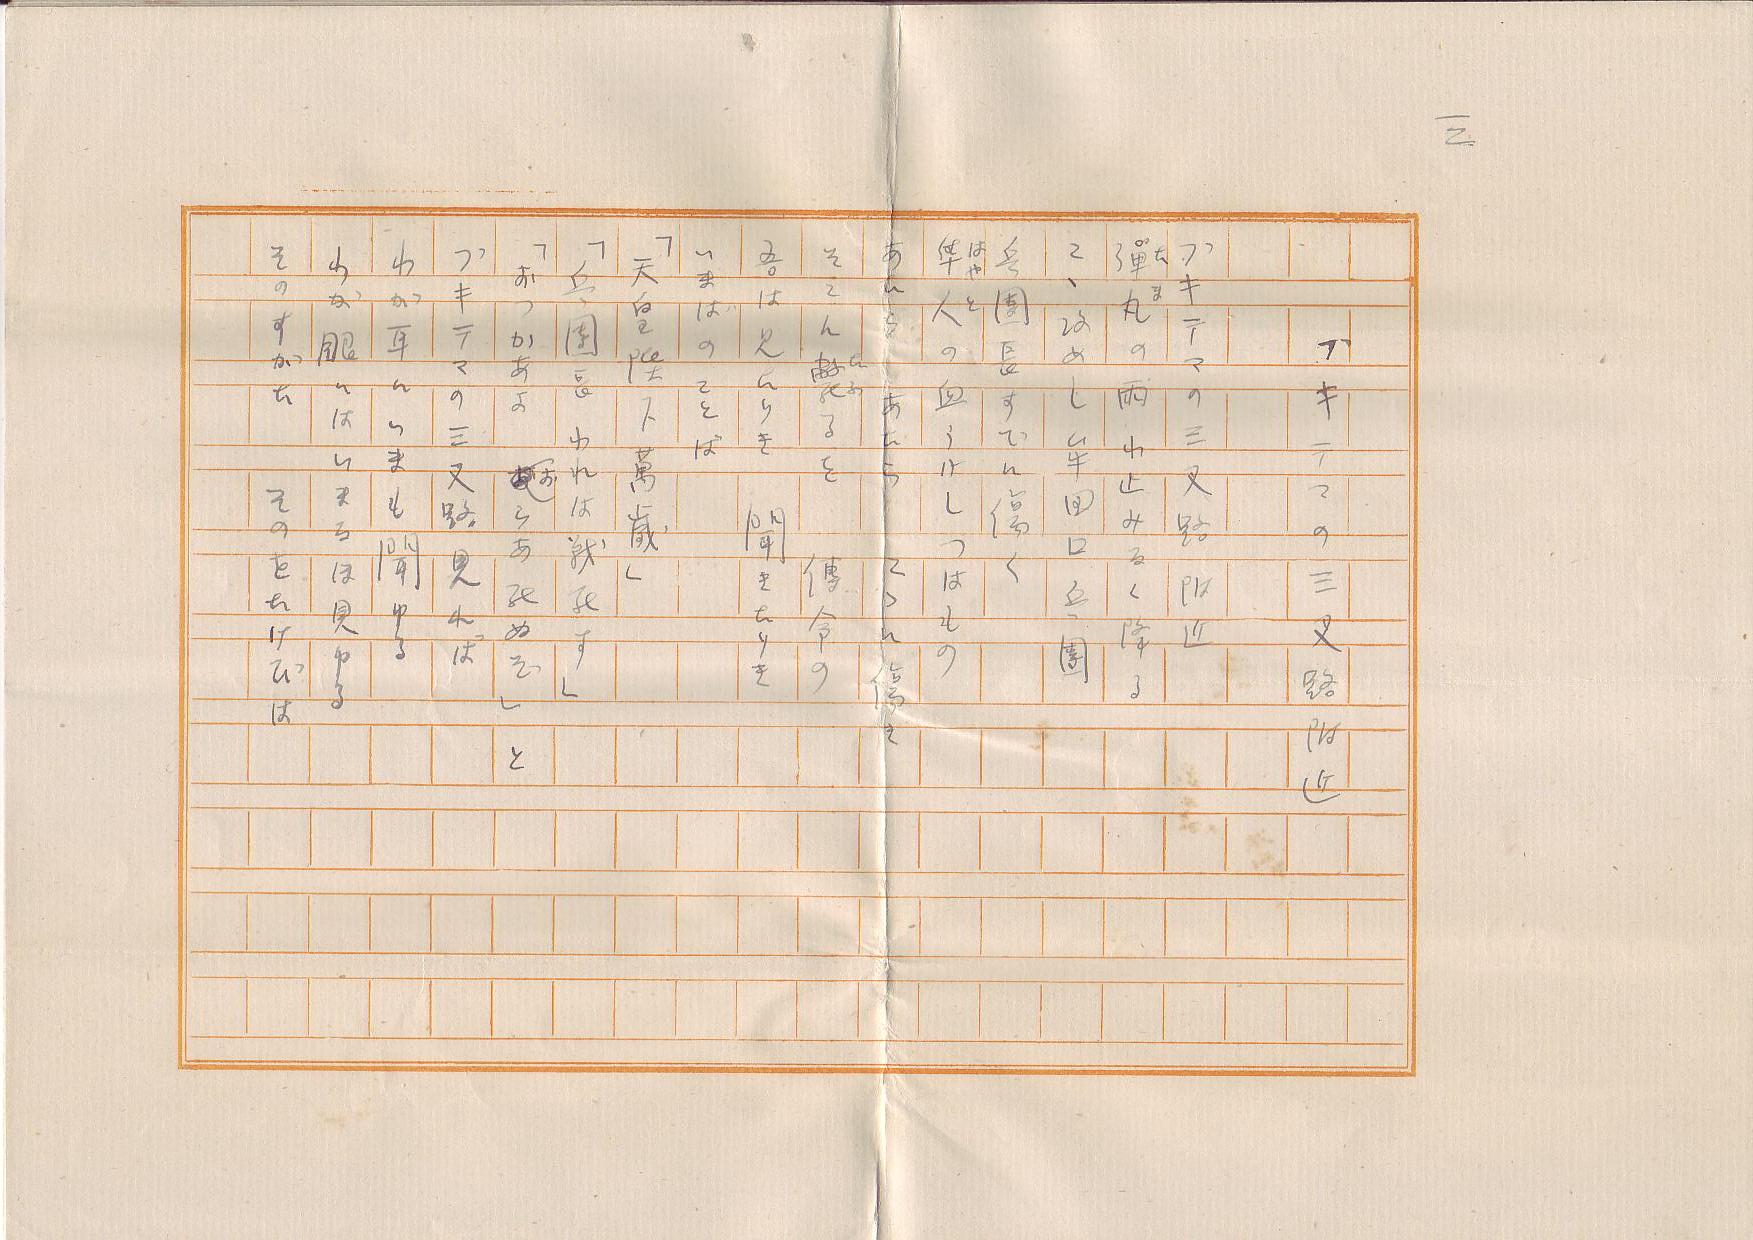 三
ブキテマの三叉路附近
ブキテマの三叉路附近
彈丸の雨わ止みなく降る
たま
こゝ攻めし牟田口兵團
兵團長すでに傷く
隼人の血うけしつはもの
はやと
あたらあたらこゝに傷き
そこに斃るを
傳令の
吾は見たりき 聞きたりき
いまはのことば
「天皇陛下萬歳」
「兵團長 われは戦死す」
「おっかあよ おらあ死ぬぞ」と
ブキテマの三叉路見れば
わが耳にいまも聞ゆる
わが眼にはいまなほ見ゆる
そのすがた そのをたけびは